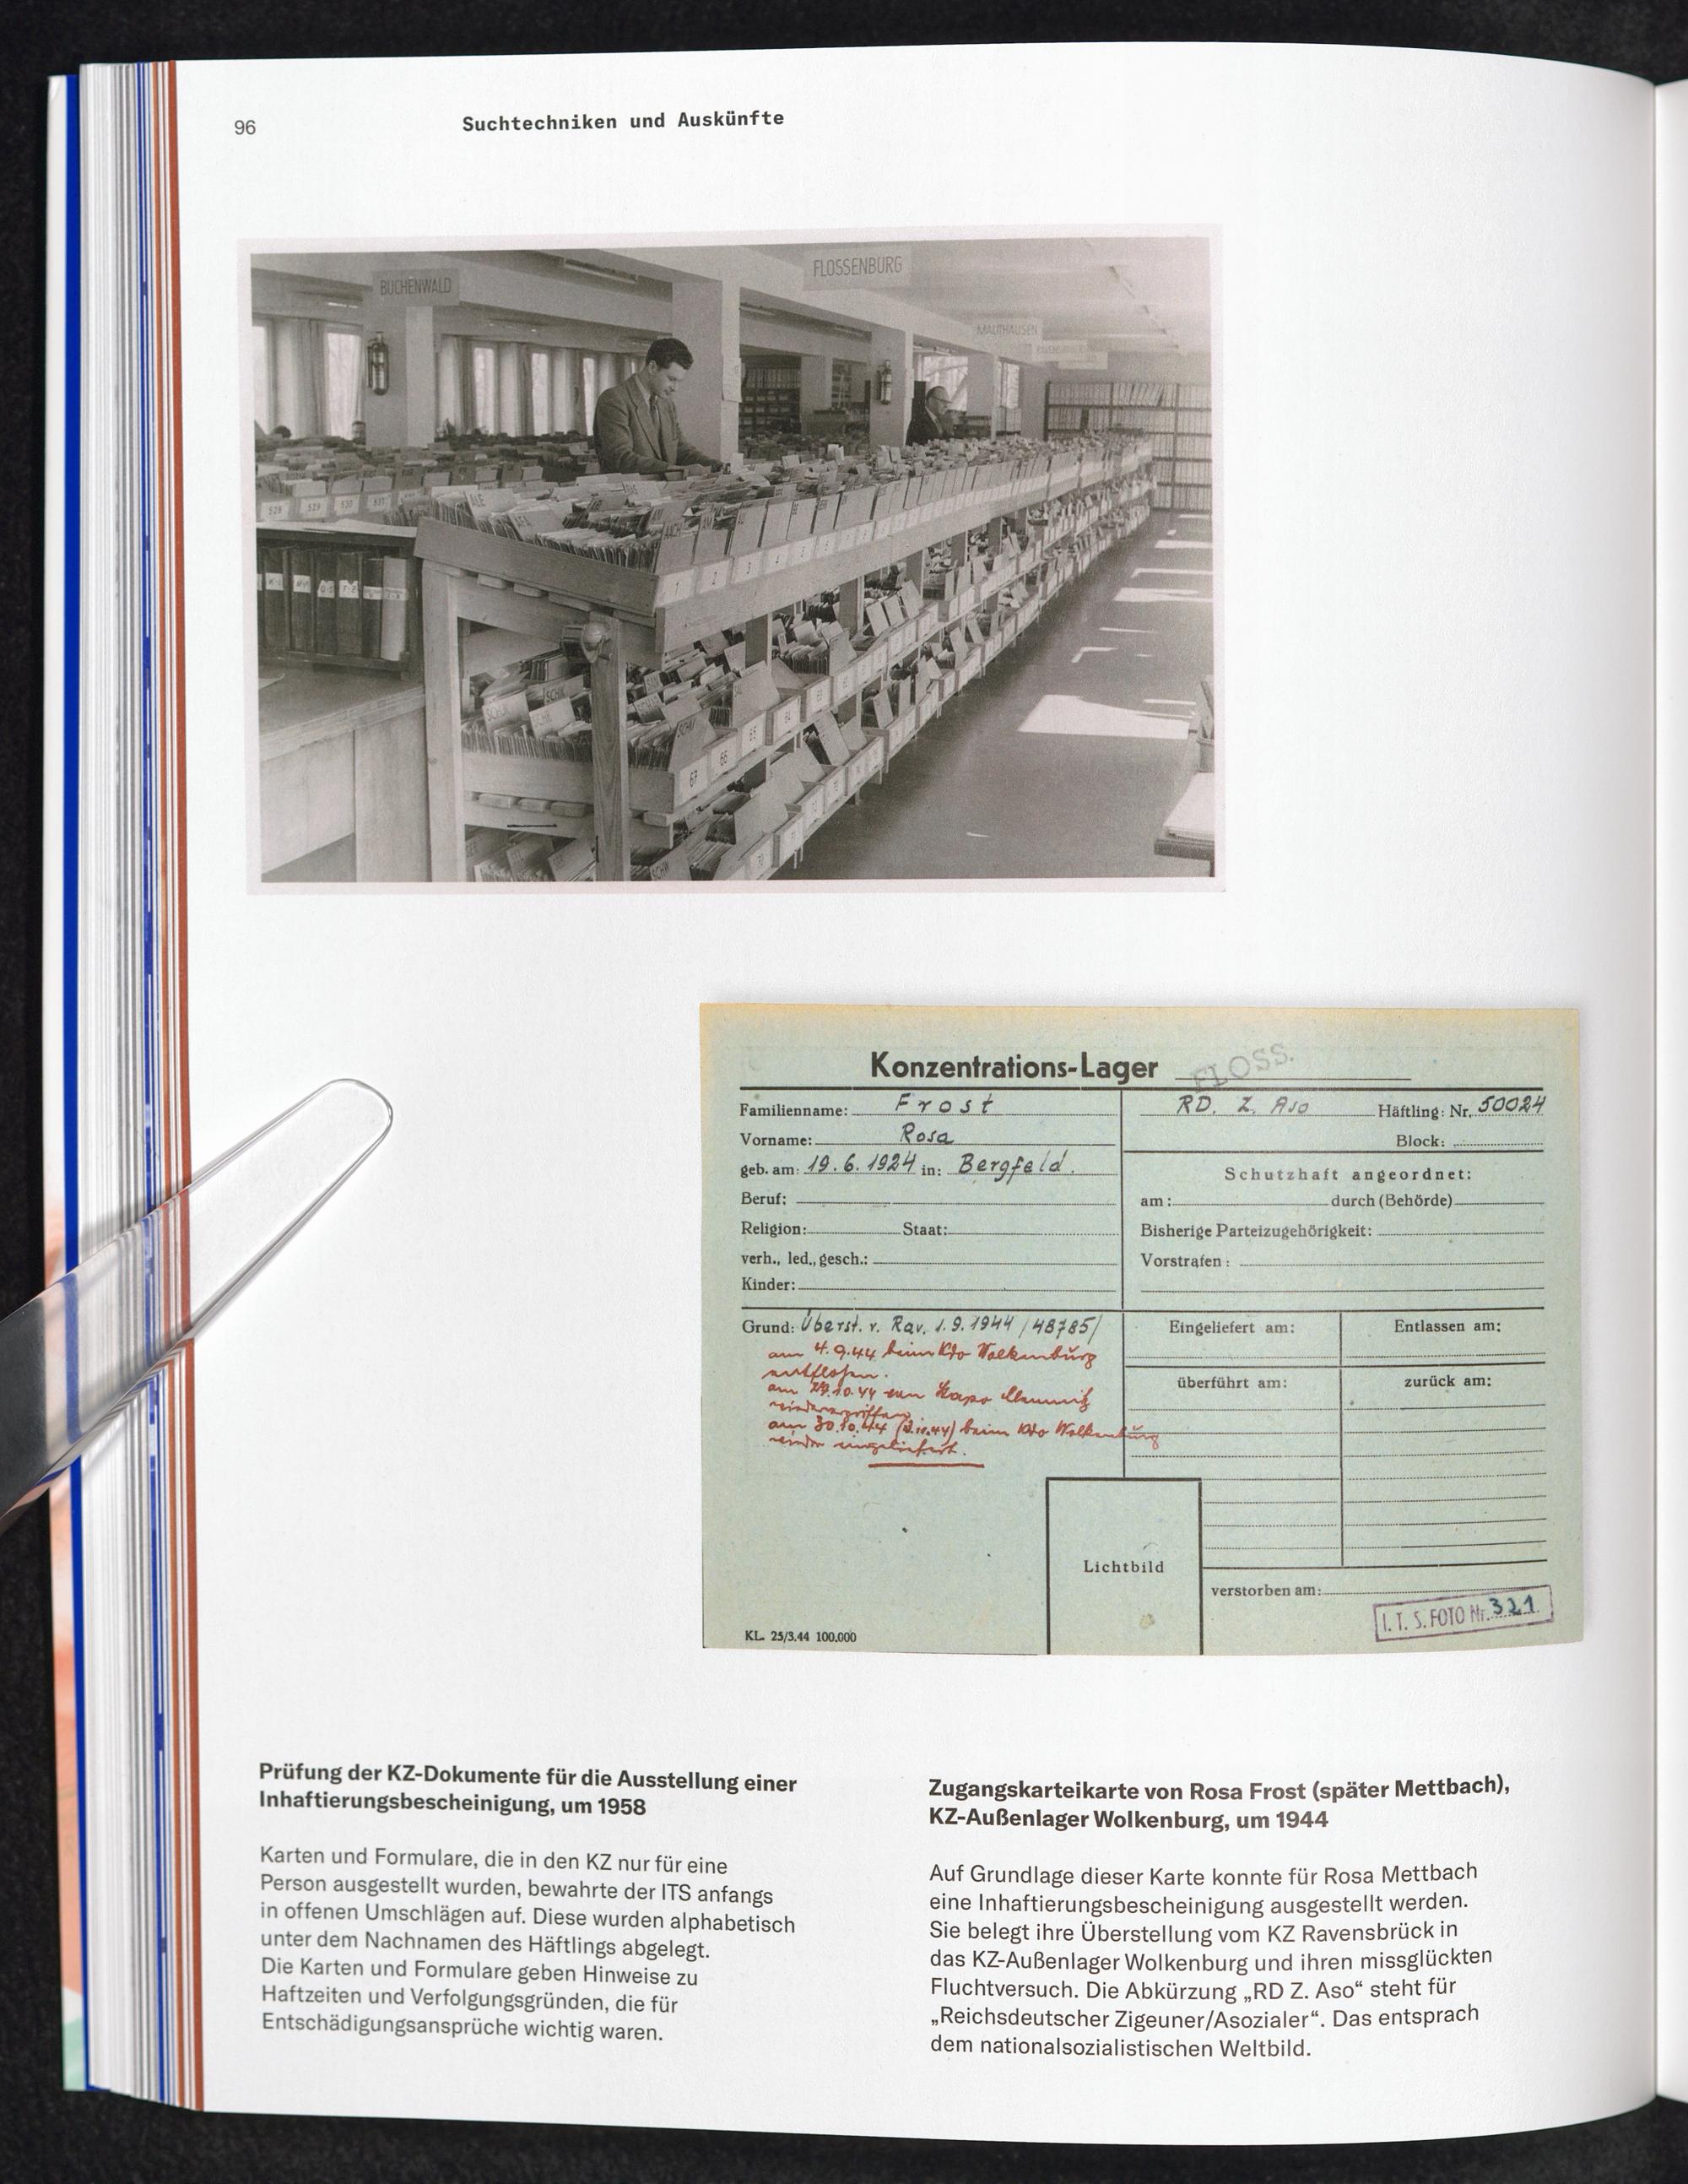 96
Suchtechniken und Auskünfte
BUCHENWALD
FLOSSENBURG
MAUTHAUSEN
528 529 530 531
ALE
1 2 3 4 5 6 7 8
SCHK
67 66 65 64 63
Konzentrations-Lager
FLOSS.
Familienname: Frost
Vorname: Rosa
geb. am: 19.6.1924 in: Bergfeld.
Beruf:
Religion: Staat:
verh., led., gesch.:
Kinder:
RD. Z. Aso Häftling: Nr. 50024
Block:
Schutzhaft angeordnet:
am: durch (Behörde)
Bisherige Parteizugehörigkeit:
Vorstrafen:
Grund: Überst. v. Rav. 1.9.1944 /48785/
am 4.9.44 beim Kdo Wolkenburg
entflohen.
am 29.10.44 Stapo Chemnitz
wiederergriffen
am 30.10.44 beim Kdo Wolkenburg
wieder eingeliefert.
Eingeliefert am: Entlassen am:
überführt am: zurück am:
Lichtbild
verstorben am:
I. T. S. FOTO Nr. 321
KL. 25/3.44 100.000
Prüfung der KZ-Dokumente für die Ausstellung einer
Inhaftierungsbescheinigung, um 1958
Karten und Formulare, die in den KZ nur für eine
Person ausgestellt wurden, bewahrte der ITS anfangs
in offenen Umschlägen auf. Diese wurden alphabetisch
unter dem Nachnamen des Häftlings abgelegt.
Die Karten und Formulare geben Hinweise zu
Haftzeiten und Verfolgungsgründen, die für
Entschädigungsansprüche wichtig waren.
Zugangskarteikarte von Rosa Frost (später Mettbach),
KZ-Außenlager Wolkenburg, um 1944
Auf Grundlage dieser Karte konnte für Rosa Mettbach
eine Inhaftierungsbescheinigung ausgestellt werden.
Sie belegt ihre Überstellung vom KZ Ravensbrück in
das KZ-Außenlager Wolkenburg und ihren missglückten
Fluchtversuch. Die Abkürzung „RD Z. Aso“ steht für
„Reichsdeutscher Zigeuner/Asozialer“. Das entsprach
dem nationalsozialistischen Weltbild.